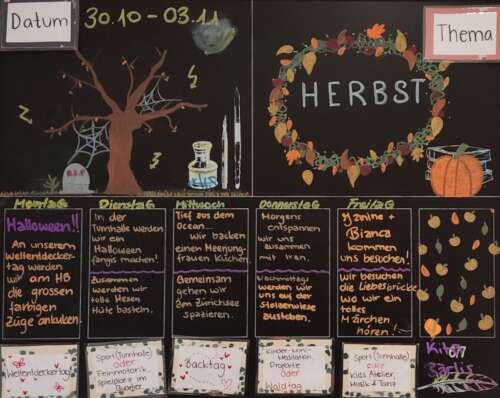 Datum
30.10 - 03.11
Thema
HERBST
R.I.P
Montag
Halloween!!
An unserem
Weltentdecker-
tag werden
wir am HB
die grossen
farbigen
Züge ankucken.
Dienstag
In der
Turnhalle werden
wir ein
Halloween
fangis machen!
Zusammen
werden wir
tolle Hexen
Hüte basteln.
Mittwoch
Tief aus dem
Ocean...
wir backen
einen Meerjung-
frauen Kuchen.
Gemeinsam
gehen wir
am Zürichsee
spazieren.
Donnerstag
Morgens
entspannen
wir uns
zusammen
mit Iran.
Nachmittags
werden wir
uns auf der
Stolzewiese
austoben.
Freitag
Janine +
Bianca
kommen
uns besuchen!
wir besuchen
die Liebesbrücke
wo wir ein
tolles
Märchen
hören!
Weltentdeckertag
Sport (Turnhalle)
oder
Feinmotorik
Spielplatz im
Quartier
Backtag
Projekte
oder
Waldtag
Sport (Turnhalle)
oder
Kiss Atelier,
Musik & Tanz
Kita
Bärlis